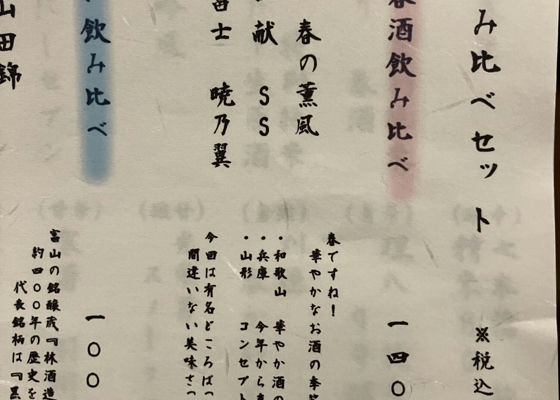 み比べセット ※税込
春酒飲み比べ 一四〇
春の薫風
献 SS
富士 暁乃翼
春ですね！
華やかなお酒の季節
・和歌山 華やか酒の
・兵庫 今年から
・山形 コンセプト
今回は有名どころばっ
間違いない美味さっ
飲み比べ 一〇〇
富山の銘醸蔵『林酒造
約四〇〇年の歴史を
代表銘柄は『黒
山田錦